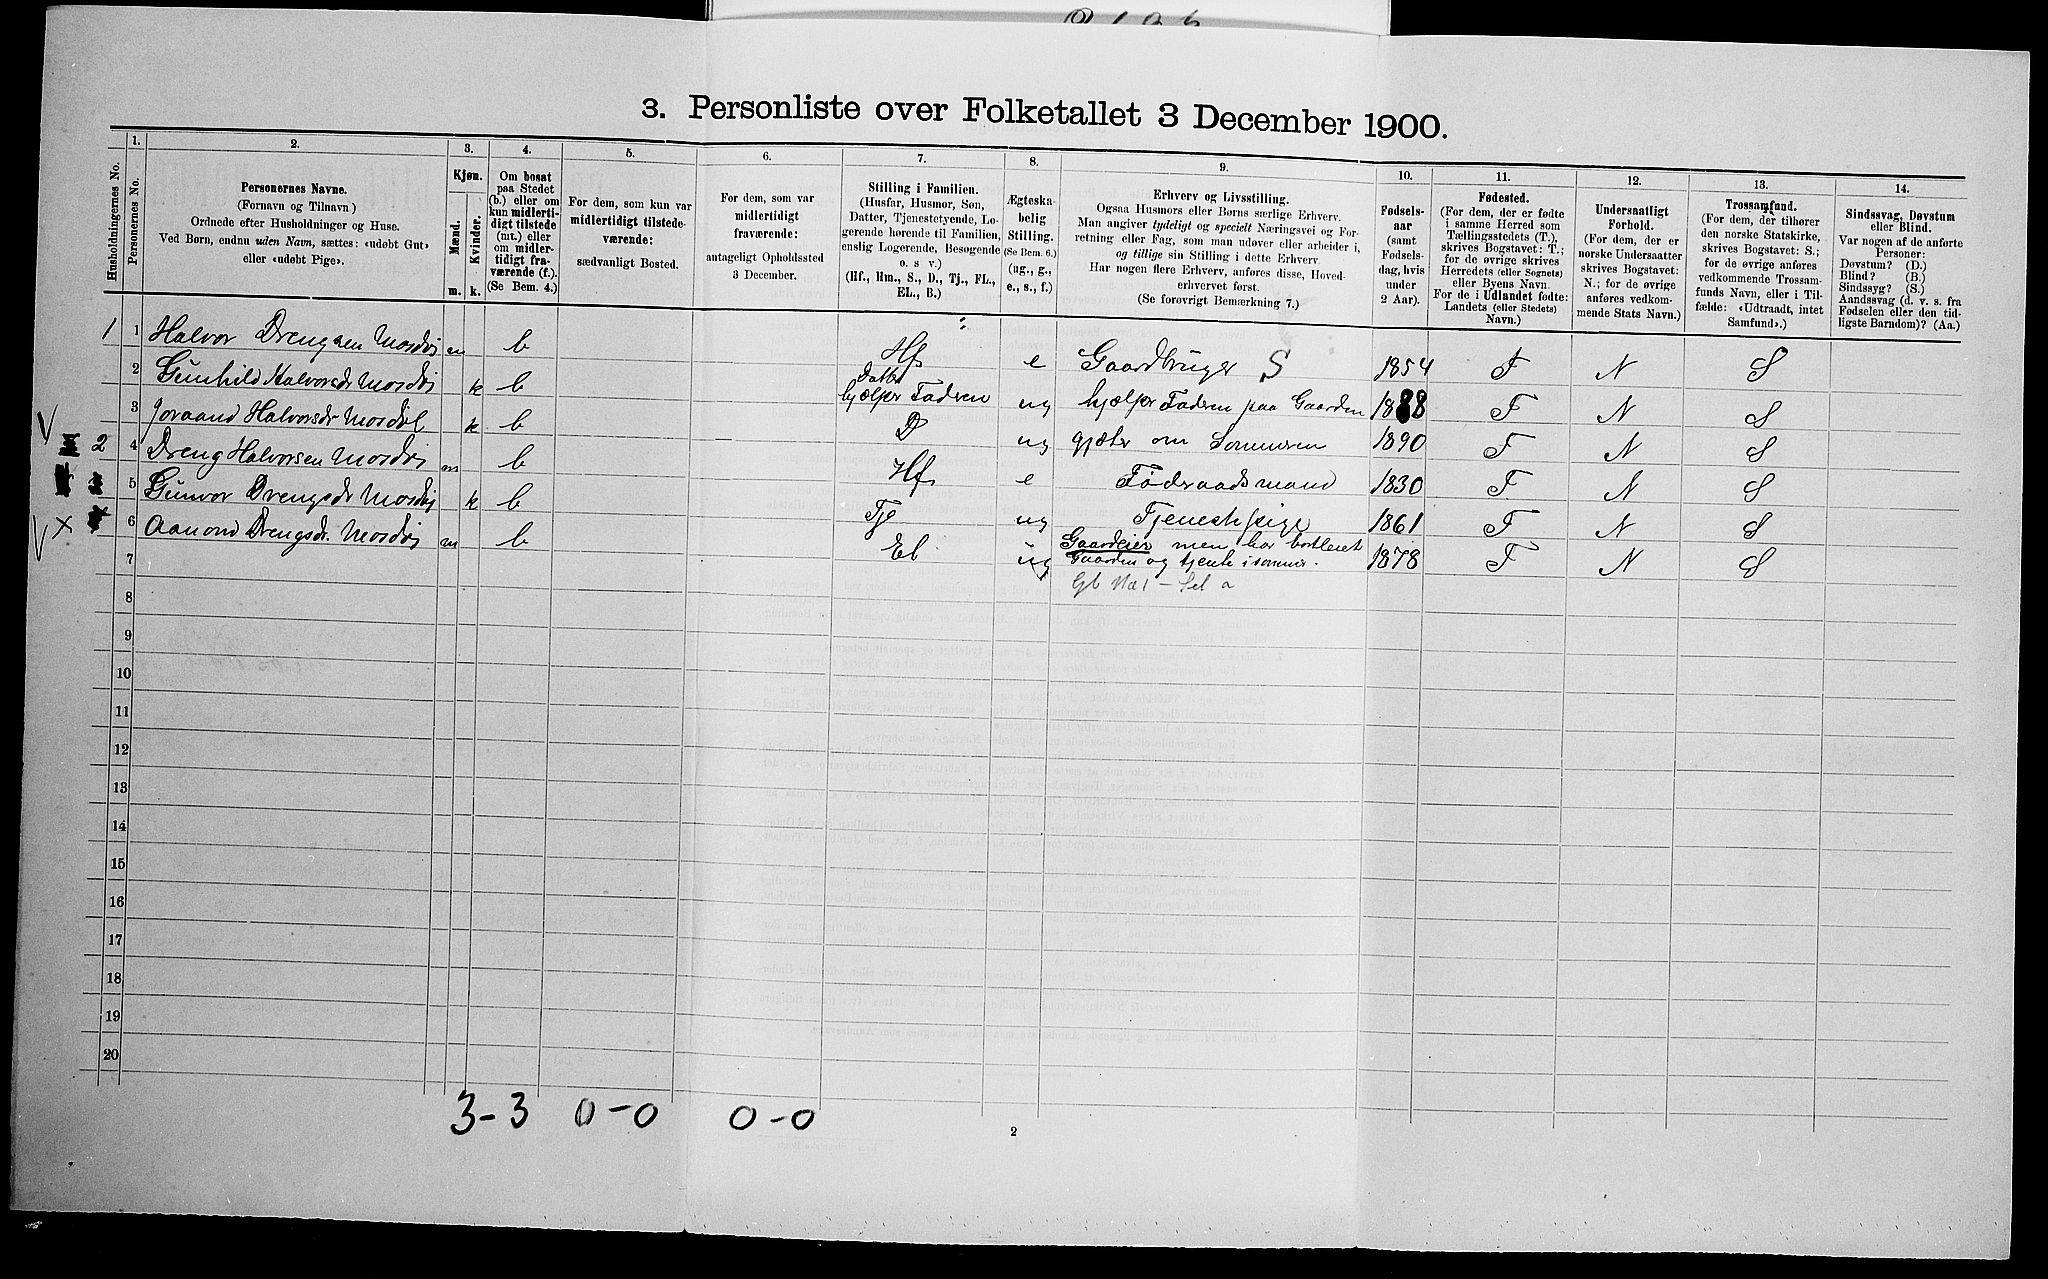 3. Personliste over Folketallet 3 December 1900.
Husholdningernes No.
1.
Personernes No.
2.
Personernes Navne.
(Fornavn og Tilnavn.)
Ordnede efter Husholdninger og Huse.
Ved Børn, endnu uden Navn, sættes: «udøbt Gut»
eller «udøbt Pige».
3.
Kjøn.
Mænd.
Kvinder.
m. k.
4.
Om bosat
paa Stedet
(b.) eller om
kun midlerti-
digt tilstede
(mt.) eller
om midler-
tidigt fra-
værende (f.).
(Se Bem. 4.)
5.
For dem, som kun var
midlertidigt tilstede-
værende:
sædvanligt Bosted.
6.
For dem, som var
midlertidigt
fraværende:
antageligt Opholdssted
3 December.
7.
Stilling i Familien.
(Husfar, Husmor, Søn,
Datter, Tjenestetyende, Lo-
gerende hørende til Familien,
enslig Logerende, Besøgende
o. s. v.)
(Hf., Hm., S., D., Tj., FL.,
EL., B.)
8.
Ægteska-
belig
Stilling.
(Se Bem. 6.)
(ug., g.,
e., s., f.)
9.
Erhverv og Livsstilling.
Ogsaa Husmors eller Børns særlige Erhverv.
Man angiver tydeligt og specielt Næringsvei og For-
retning eller Fag, som man udøver eller arbeider i,
og tillige sin Stilling i dette Erhverv.
Har nogen flere Erhverv, anføres disse, Hoved-
erhvervet først.
(Se forøvrigt Bemærkning 7.)
10.
Fødsels-
aar
(samt
Fødsels-
dag, hvis
under
2 Aar).
11.
Fødested.
(For dem, der er fødte
i samme Herred som
Tællingsstedets (T.),
skrives Bogstavet: T.;
for de øvrige skrives
Herredets (eller Sognets)
eller Byens Navn.
For de i Udlandet fødte:
Landets (eller Stedets)
Navn.)
12.
Undersaatligt
Forhold.
(For dem, der er
norske Undersaatter
skrives Bogstavet:
N.; for de øvrige
anføres vedkom-
mende Stats Navn.)
13.
Trossamfund.
(For dem, der tilhører
den norske Statskirke,
skrives Bogstavet: S.;
for de øvrige anføres
vedkommende Trossam-
funds Navn, eller i Til-
fælde: «Udtraadt, intet
Samfund».)
14.
Sindssvag, Døvstum
eller Blind.
Var nogen af de anførte
Personer:
Døvstum? (D.)
Blind? (B.)
Sindssyg? (S.)
Aandssvag (d. v. s. fra
Fødselen eller den tid-
ligste Barndom)? (Aa.)
1 1 Halvor Drengsen Mosdøl m b Hf e Gaardbruger S 1854 T N S
2 Gunhild Halvorsdr Mosdøl k b Datter hjælper Faderen ug hjælper Faderen paa Gaarden 1888 T N S
3 Joraand Halvorsdr Mosdøl k b D ug gjæter om Sommeren 1890 T N S
2 4 Dreng Halvorsen Mosdøl m b Hf e Føderaadsmand 1830 T N S
5 Gunvor Drengsdr Mosdøl k b Tje ug Tjenestepige 1861 T N S
6 Aanond Drengsdr. Mosdøl m b El ug Gaardeier men har bortleiet
Gaarden og tjente i sommer. 1878 T N S
7 Gb
8
9
10
11
12
13
14
15
16
17
18
19
20
3-3 0-0 0-0
2